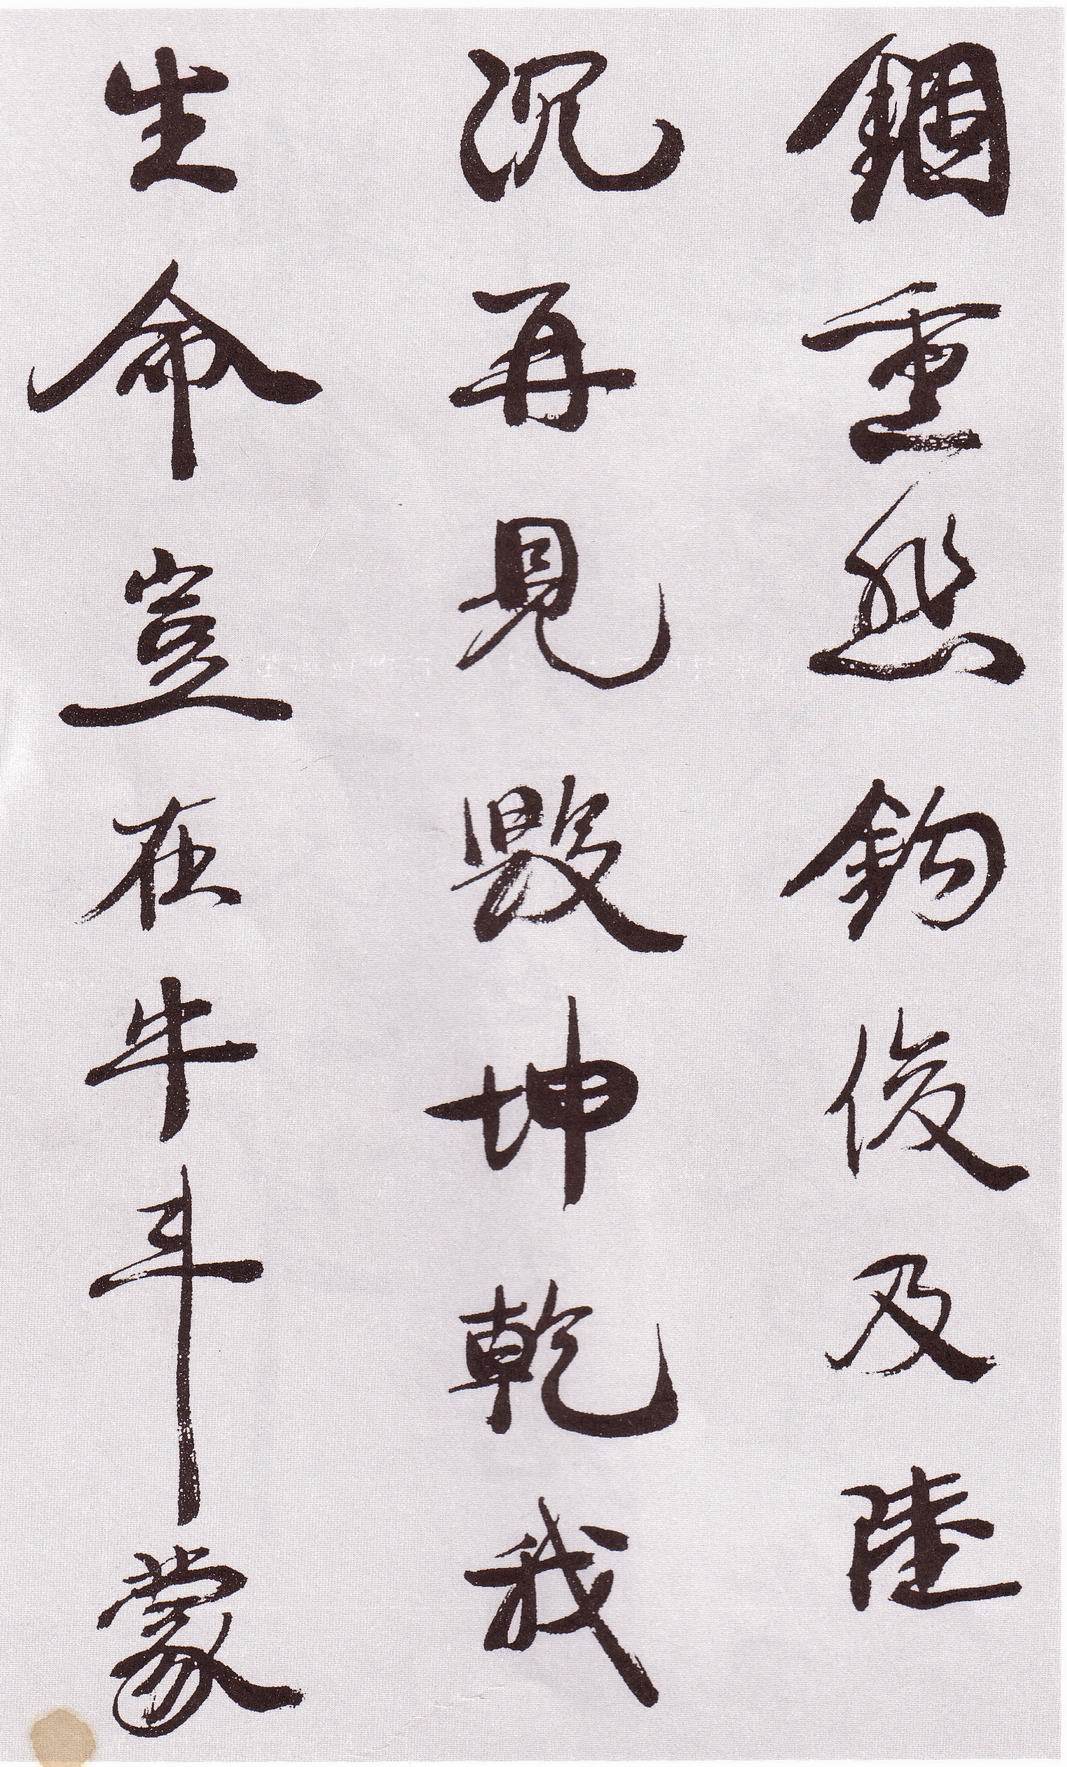 錮重然鈎俊及陸
沉再見毀坤乾我
生命豈在牛斗蒙